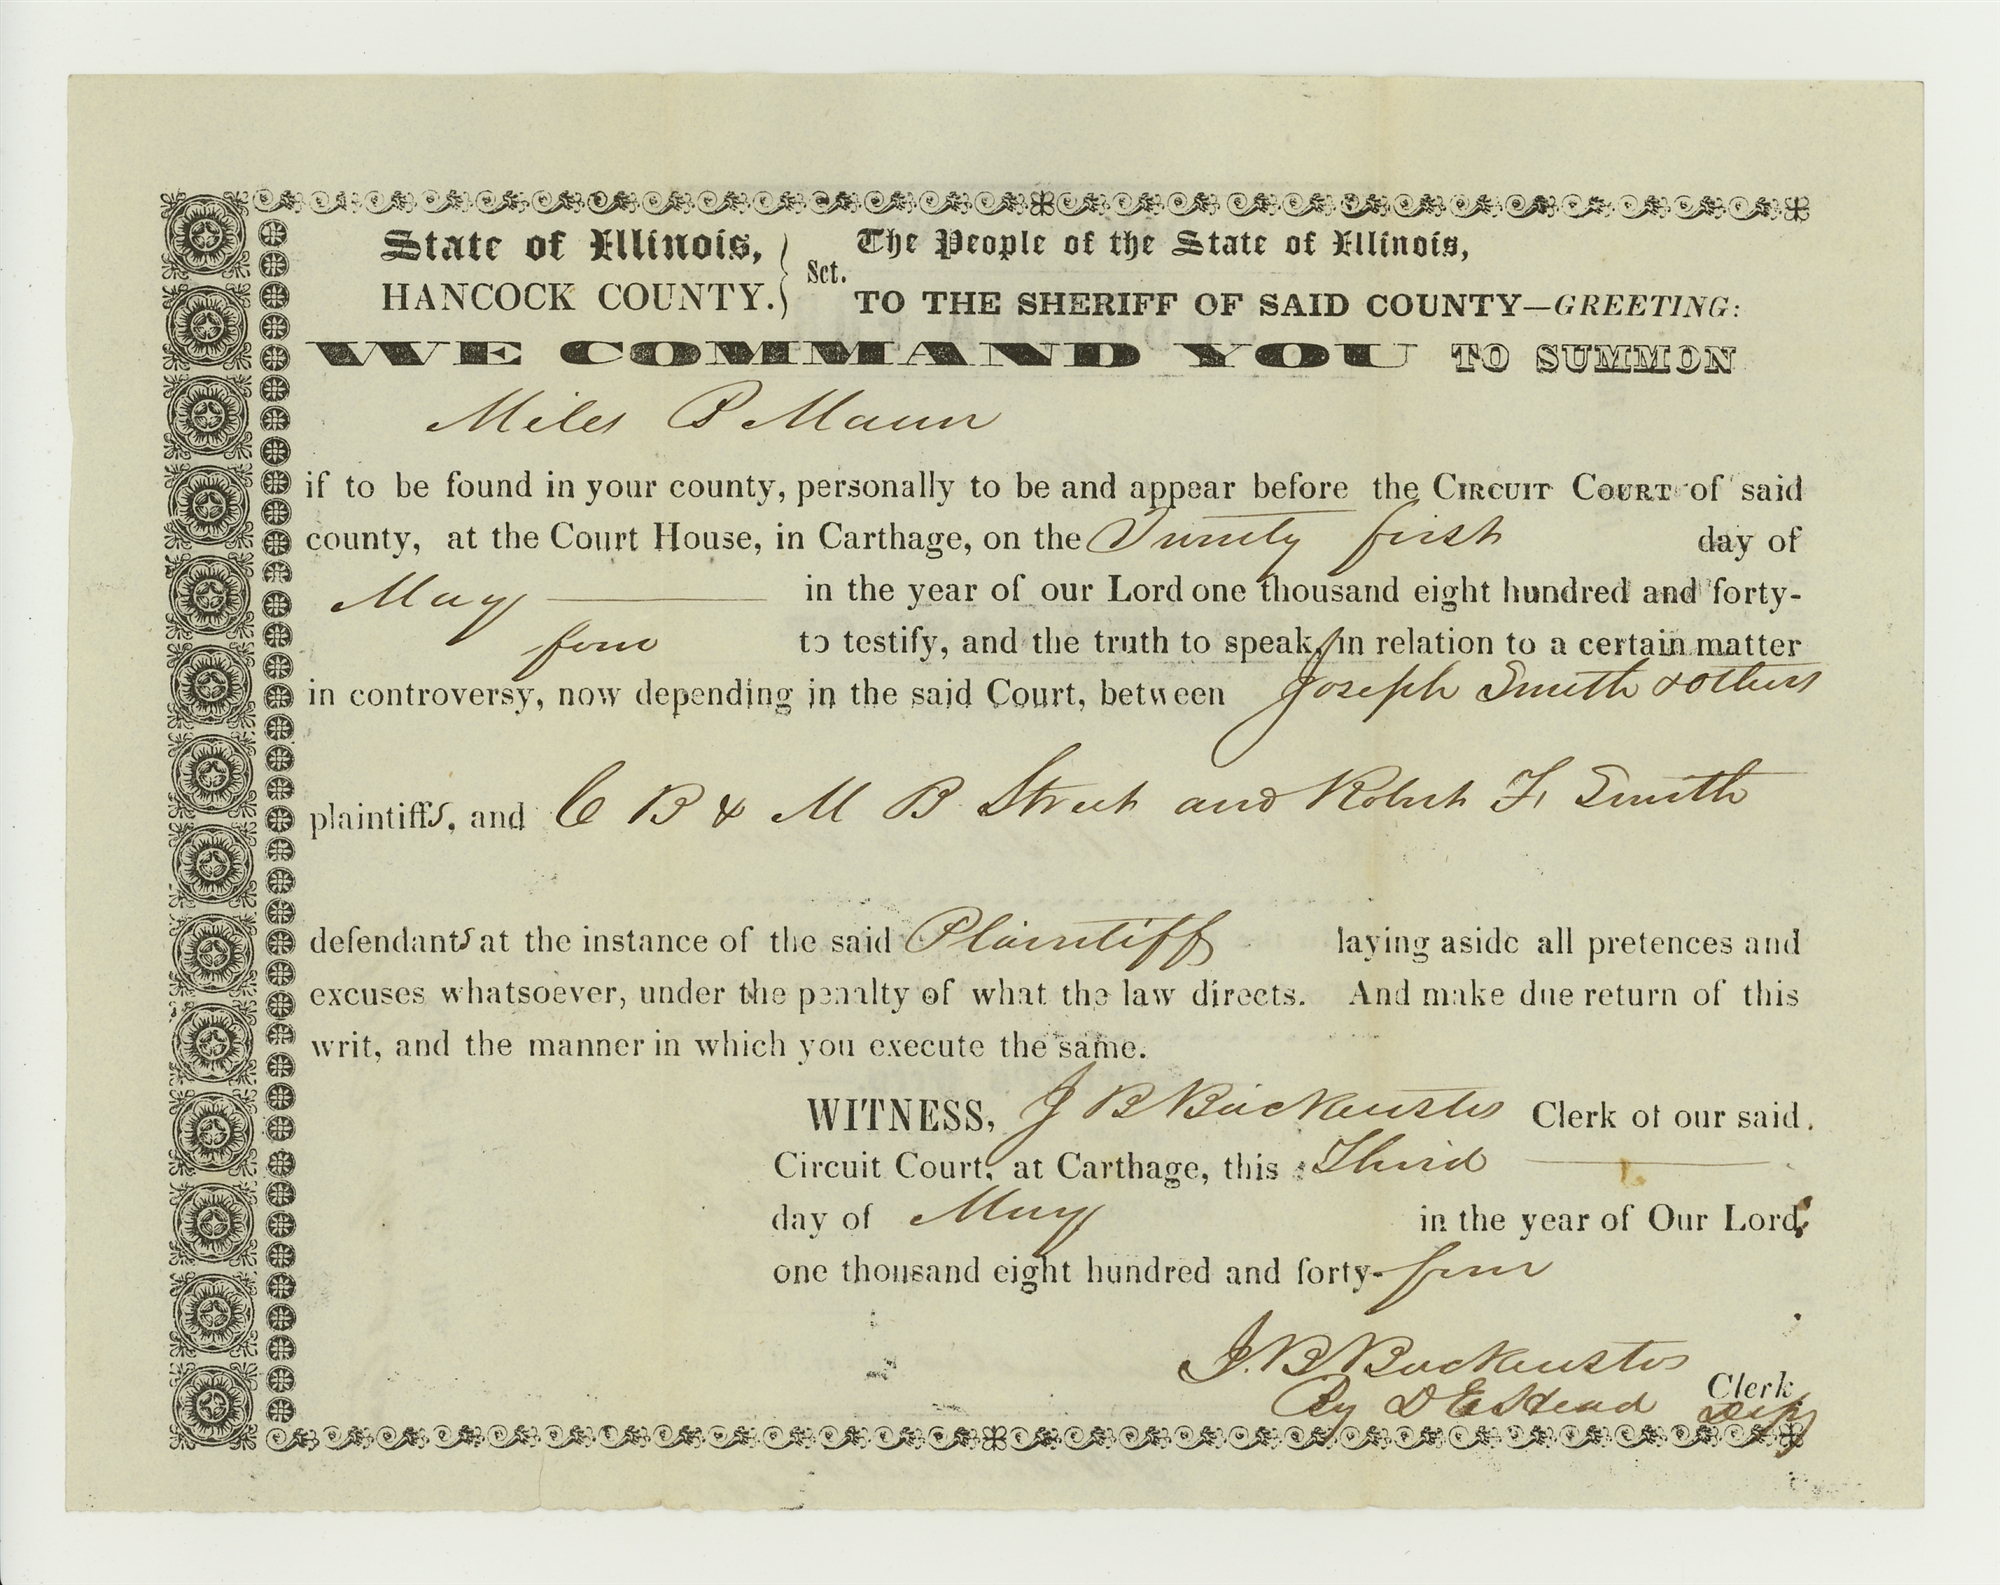 State of Illinois, } Sct. The People of the State of Illinois,
HANCOCK COUNTY. TO THE SHERIFF OF SAID COUNTY—GREETING:
WE COMMAND YOU TO SUMMON
Miles P Mann
if to be found in your county, personally to be and appear before the CIRCUIT COURT of said
county, at the Court House, in Carthage, on the Twenty first day of
May in the year of our Lord one thousand eight hundred and forty-
four to testify, and the truth to speak, in relation to a certain matter
in controversy, now depending in the said Court, between Joseph Smith & others
plaintiffs, and C B & M B Street and Robert F, Smith
defendants at the instance of the said Plaintiff laying aside all pretences and
excuses whatsoever, under the penalty of what the law directs. And make due return of this
writ, and the manner in which you execute the same.
WITNESS, J B Backenstos Clerk of our said
Circuit Court, at Carthage, this Third
day of May in the year of Our Lord
one thousand eight hundred and forty-four
J. B Backenstos Clerk
By D E Head Depy